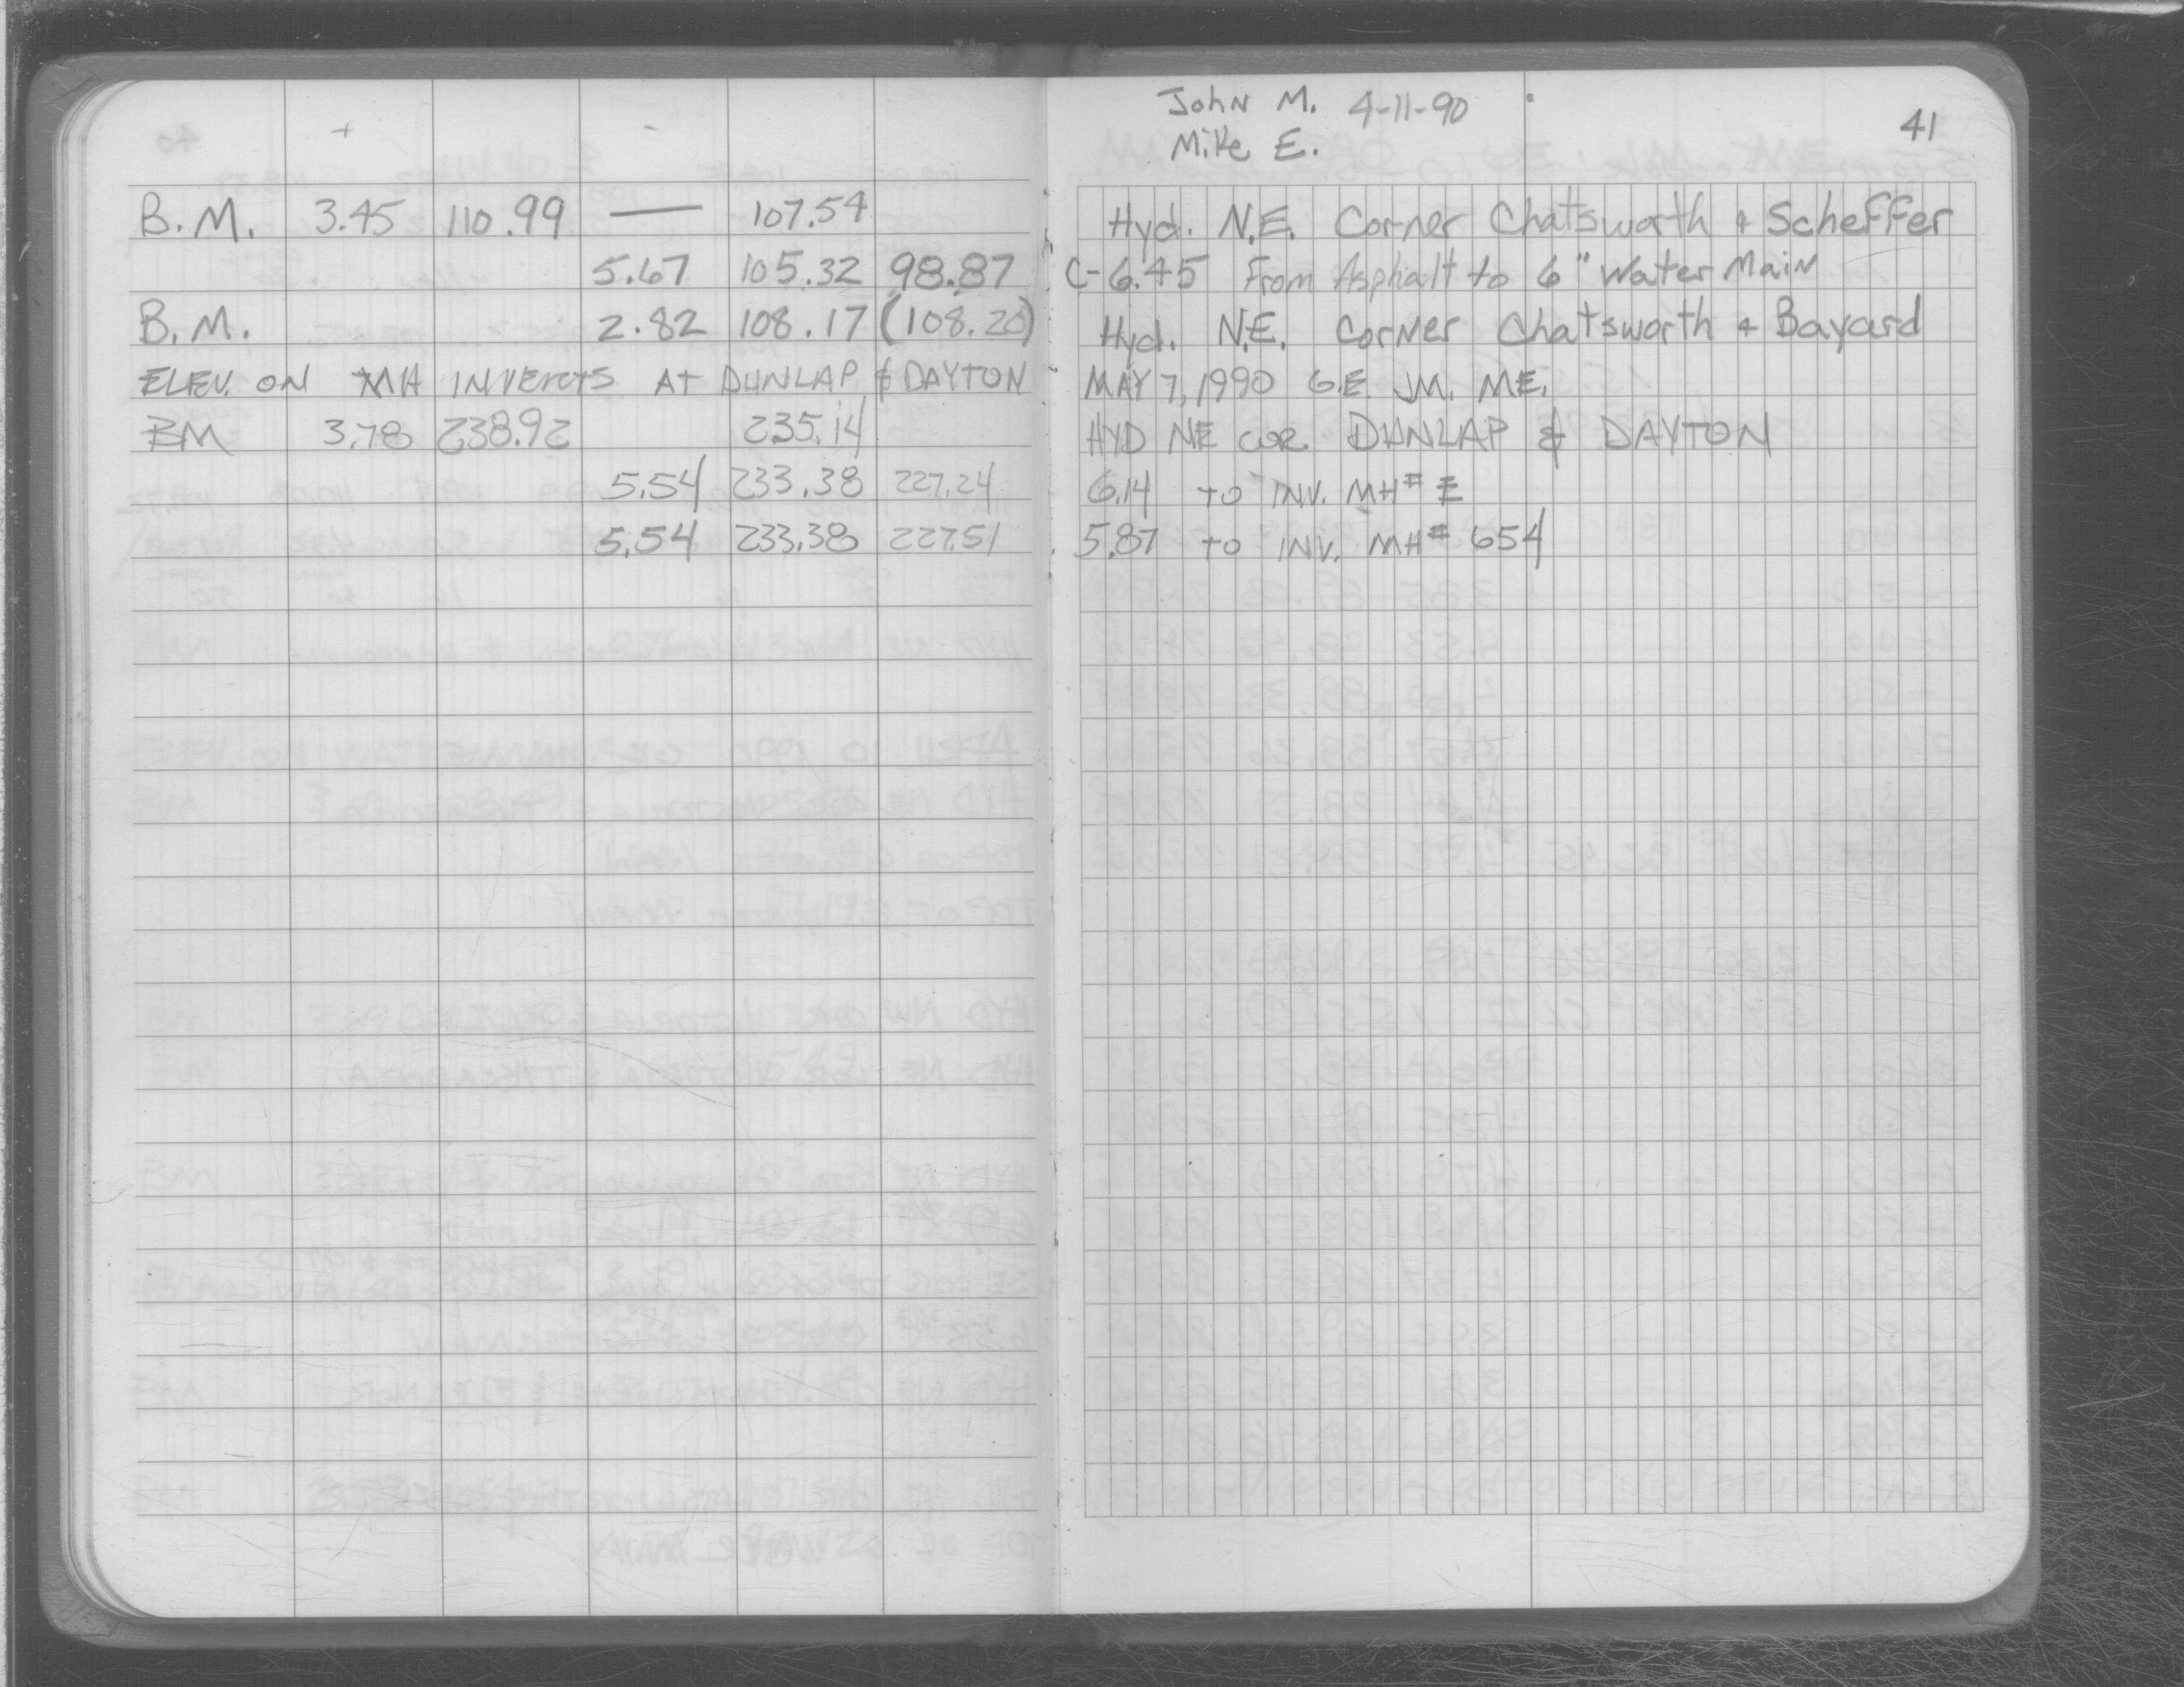 John M. 4-11-90
Mike E.
41
+ -
B.M. 3.45 110.99 — 107.54 Hyd. N.E. Corner Chatsworth & Scheffer
5.67 105.32 98.87 C-6.45 From Asphalt to 6" Water Main
B.M. 2.82 108.17 (108.20) Hyd. N.E. Corner Chatsworth & Bayard
ELEV. ON MH INVERTS AT DUNLAP & DAYTON MAY 7, 1990 G.E. JM. ME.
BM 3.78 238.92 235.14 HYD NE COR. DUNLAP & DAYTON
5.54 233.38 227.24 6.14 TO INV. MH# E
5.54 233.38 227.51 5.87 TO INV. MH# 654